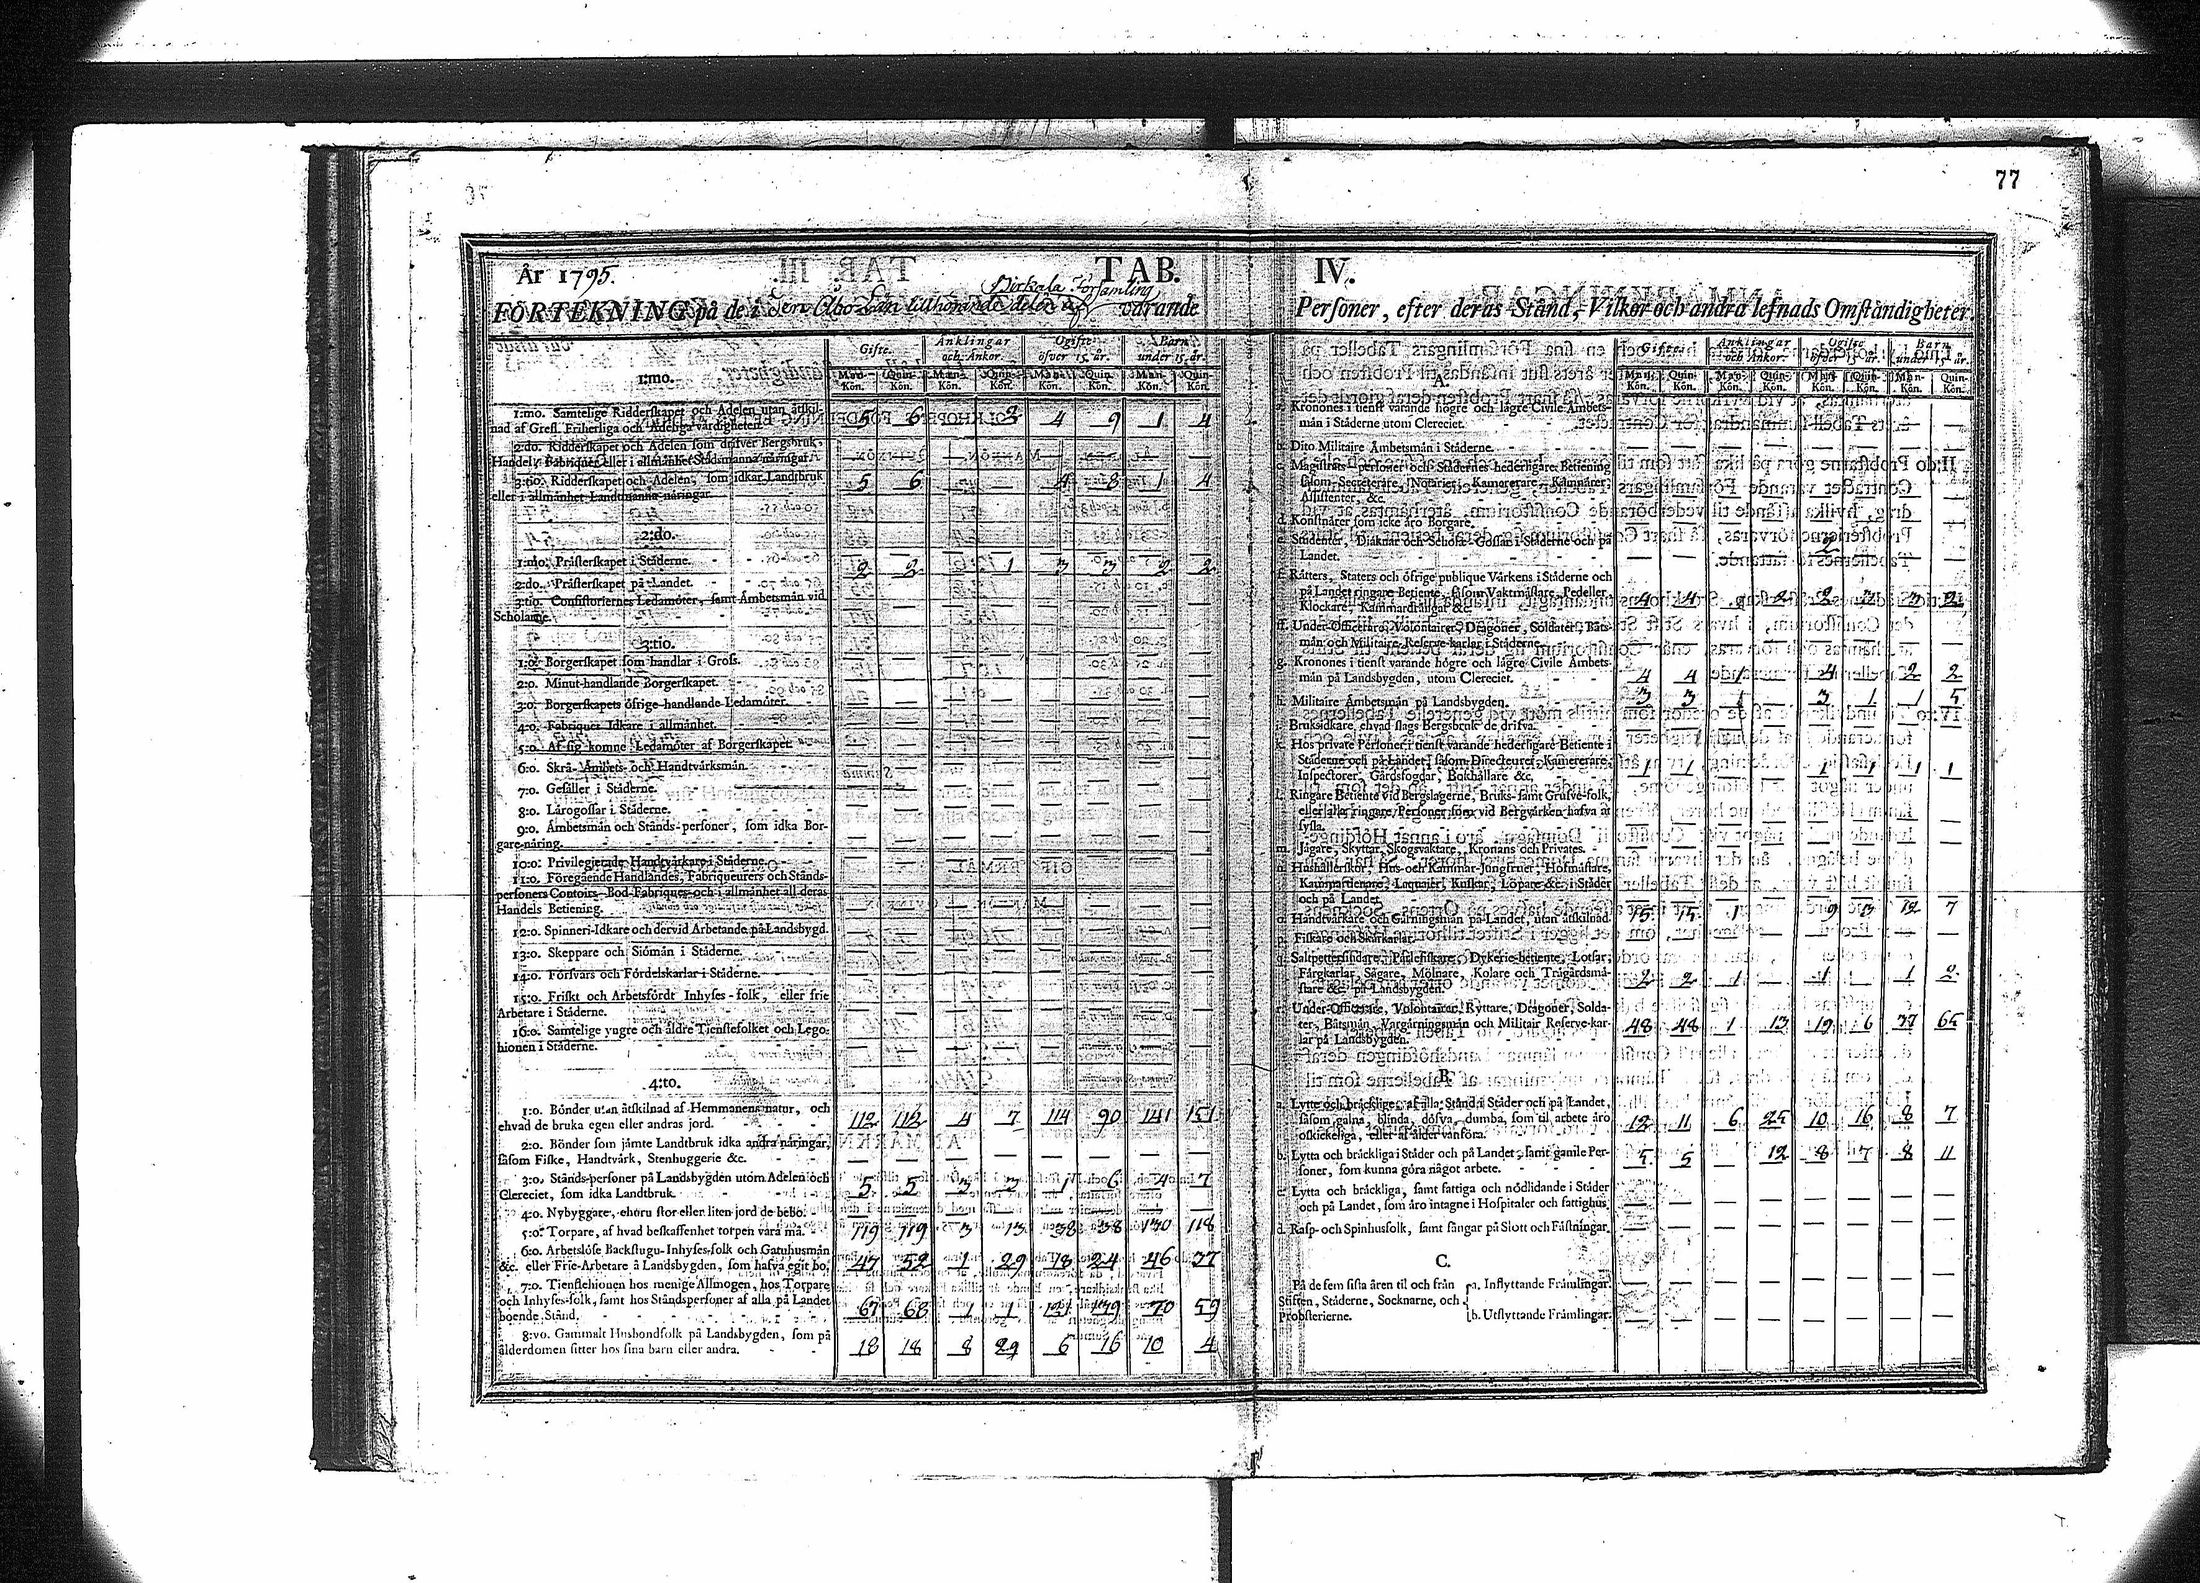 77
År 1795.
TAB. IV.
Birkala Församling
FÖRTEKNING på de i den Åbo Län tillhörande delen af varande Personer, efter deras Stånd, Vilkor och andra lefnads Omståndigheter.
Gifte. Änklingar och Änkor. Ogifte öfver 15. år. Barn under 15. år.
Man-Kön. Quin-Kön. Man-Kön. Quin-Kön. Man-Kön. Quin-Kön. Man-Kön. Quin-Kön.
1:mo.
1:mo. Samtelige Ridderskapet och Adelen utan åtskil-
nad af Grefl. Friherliga och Adeliga värdigheter. 5 6 — 2 4 9 1 4
2:do. Ridderskapet och Adelen som drifver Bergsbruk,
Handel, Fabriquer eller i allmänhet Stadsmanna näringar. — — — — — — — —
3:tio. Ridderskapet och Adelen, som idkar Landtbruk
eller i allmänhet Landtmanna näringar. 5 6 — — 4 8 1 4
2:do.
1:mo. Prästerskapet i Städerne. — — — — — — — —
2:do. Prästerskapet på Landet. 2 2 — 1 3 3 2 2
3:tio. Consistoriernes Ledamöter, samt Ämbetsmän vid
Scholarne. — — — — — — — —
3:tio.
1:o. Borgerskapet som handlar i Gross. — — — — — — — —
2:o. Minut-handlande Borgerskapet. — — — — — — — —
3:o. Borgerskapets öfrige handlende Ledamöter. — — — — — — — —
4:o. Fabriquer Idkare i allmänhet. — — — — — — — —
5:o. Af sig komne Ledamöter af Borgerskapet. — — — — — — — —
6:o. Skrå- Ämbets- och Handtvärksmän. — — — — — — — —
7:o. Gesäller i Städerne. — — — — — — — —
8:o. Lärogossar i Städerne. — — — — — — — —
9:o. Ämbetsmän och Stånds-personer, som idka Bor-
gare-näring. — — — — — — — —
10:o. Privilegierade Handtvärkare i Städerne. — — — — — — — —
11:o. Föregående Handlandes, Fabriqueurers och Stånds-
personers Contoirs- Bod- Fabriques- och i allmänhet all deras
Handels Betiening. — — — — — — — —
12:o. Spinneri-Idkare och dervid Arbetande på Landsbygd. — — — — — — — —
13:o. Skeppare och Siömän i Städerne. — — — — — — — —
14:o. Försvars och Fördelskarlar i Städerne. — — — — — — — —
15:o. Friskt och Arbetsfördt Inhyses-folk, eller frie
Arbetare i Städerne. — — — — — — — —
16:o. Samtelige yngre och äldre Tienstefolket och Lego-
hionen i Städerne. — — — — — — — —
4:to.
1:o. Bönder utan åtskilnad af Hemmanens natur, och
ehvad de bruka egen eller andras jord. 112 112 4 7 114 90 141 151
2:o. Bönder som jämte Landtbruk idka andra näringar,
såsom Fiske, Handtvärk, Stenhuggerie &c. — — — — — — — —
3:o. Stånds-personer på Landsbygden utom Adelen och
Clereciet, som idka Landtbruk. 5 5 3 3 1 6 4 7
4:o. Nybyggare, ehuru stor eller liten jord de bebo. — — — — — — — —
5:o. Torpare, af hvad beskaffenhet torpen vara må. 119 119 3 13 38 38 130 118
6:o. Arbetslöse Backstugu-Inhyses-folk och Gatuhusmän
&c. eller Frie-Arbetare å Landsbygden, som hafva egit bo. 47 52 1 29 18 24 46 37
7:o. Tienstehionen hos menige Allmogen, hos Torpare
och Inhyses-folk, samt hos Ståndspersoner af alla på Landet
boende Stånd. 67 68 1 1 131 179 70 59
8:vo. Gammalt Husbondfolk på Landsbygden, som på
ålderdomen sitter hos sina barn eller andra. 18 18 8 29 6 16 10 4
Gifte. Änklingar och Änkor. Ogifte öfver 15. år. Barn under 15. år.
Man-Kön. Quin-Kön. Man-Kön. Quin-Kön. Man-Kön. Quin-Kön. Man-Kön. Quin-Kön.
A.
a. Kronones i tienst varande högre och lägre Civile Ämbets-
män i Städerne utom Clereciet. — — — — — — — —
b. Dito Militaire Ämbetsmän i Städerne. — — — — — — — —
c. Magistrats-personer och Städernes hederligare Betiening
såsom Secreterare, Notarier, Kamererare, Kämnärer,
Assistenter, &c. — — — — — — — —
d. Konstnärer som icke äro Borgare. — — — — — — — —
e. Studenter, Diäknar och Schole-Gossar i Städerne och på
Landet. — — — — 2 — — —
f. Rätters, Staters och öfrige publique Värkens i Städerne och
på Landet ringare Betiente, såsom Vaktmästare, Pedeller,
Klockare, Kammardrängar &c. 4 4 — 2 2 3 3 2
ff. Under-Officerare, Volontairer, Dragoner, Soldater, Båts-
män och Militaire Reserve-karlar i Städerne. — — — — — — — —
g. Kronones i tienst varande högre och lägre Civile Ämbets-
män på Landsbygden, utom Clereciet. 4 4 1 — 4 — 2 2
h. Militaire Ämbetsmän på Landsbygden. 3 3 1 — 3 1 1 5
i. Bruksidkare, ehvad slags Bergsbruk de drifva. — — — — — — — —
k. Hos private Personer i tienst varande hederligare Betiente i
Städerne och på Landet, såsom Directeurer, Kamererare,
Inspectorer, Gårdsfogdar, Bokhållare &c. 1 1 — — 1 1 1 1
l. Ringare Betiente vid Bergslagerne, Bruks- samt Grufve-folk,
eller alla ringare Personer som vid Bergvärken hafva at
sysla. — — — — — — — —
m. Jägare, Skyttar, Skogsvaktare, Kronans och Privates. — — — — — — — —
n. Hushållerskor, Hus- och Kammar-Jungfruer, Hofmästare,
Kammartienare, Laquaier, Kuskar, Löpare &c. i Städer
och på Landet. — — — — — — — —
o. Handtvärkare och Gärningsmän på Landet, utan åtskilnad. 15 15 1 — 9 3 12 7
p. Fiskare och Skutkarlar. — — — — — — — —
q. Saltpettersiudare, Pärlefiskare, Dykerie-betiente, Lotsar,
Färgkarlar, Sågare, Mölnare, Kolare och Trägårdsmä-
stare &c. på Landsbygden. 2 2 1 — 1 — 1 2
r. Under-Officerare, Volontairer, Ryttare, Dragoner, Solda-
ter, Båtsmän, Vargärningsmän och Militair Reserve-kar-
lar på Landsbygden. 48 48 1 13 19 6 37 65
B.
a. Lytte och bräcklige, af alla Stånd i Städer och på Landet,
såsom galna, blinda, döfva, dumba, som til arbete äro
oskickeliga, eller af ålder vanföra. 12 11 6 25 10 16 8 7
b. Lytta och bräckliga i Städer och på Landet, samt gamle Per-
soner, som kunna göra något arbete. 5 5 — 12 8 7 8 11
c. Lytta och bräckliga, samt fattiga och nödlidande i Städer
och på Landet, som äro intagne i Hospitaler och fattighus. — — — — — — — —
d. Rasp- och Spinhusfolk, samt fångar på Slott och Fästningar. — — — — — — — —
C.
På de fem sista åren til och från
Stiften, Städerne, Socknarne, och
Probsterierne.
a. Inflyttande Främlingar. — — — — — — — —
b. Utflyttande Främlingar. — — — — — — — —